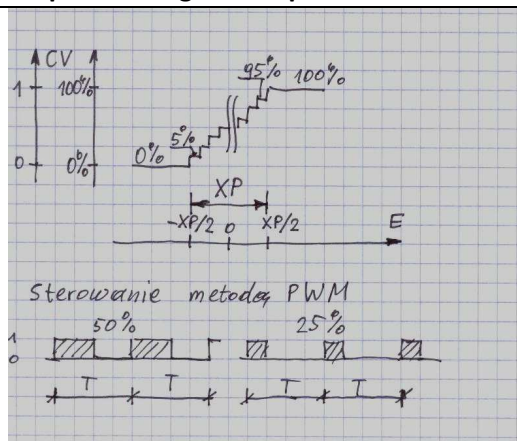 CV
95%
100%
1
100%
5%
0%
0
0%
XP
-XP/2 0 XP/2 E
Sterowanie metodą PWM
50% 25%
1
0
T T T T